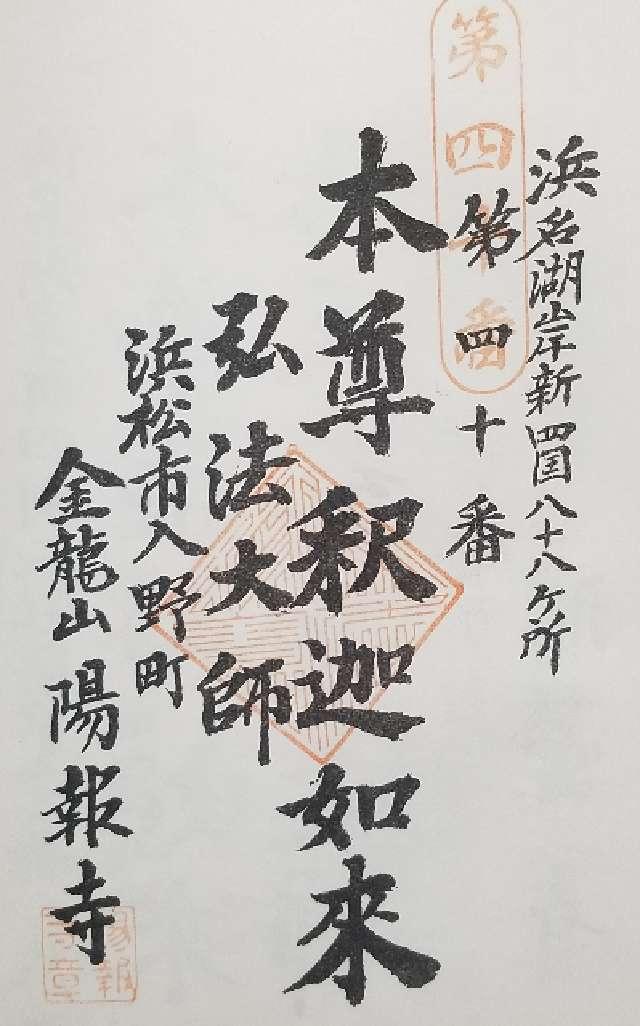 浜名湖岸新四国八十八ヶ所
第四十番
第四十番
本尊釈迦如來
弘法大師
浜松市入野町
金龍山陽報寺
陽報寺章